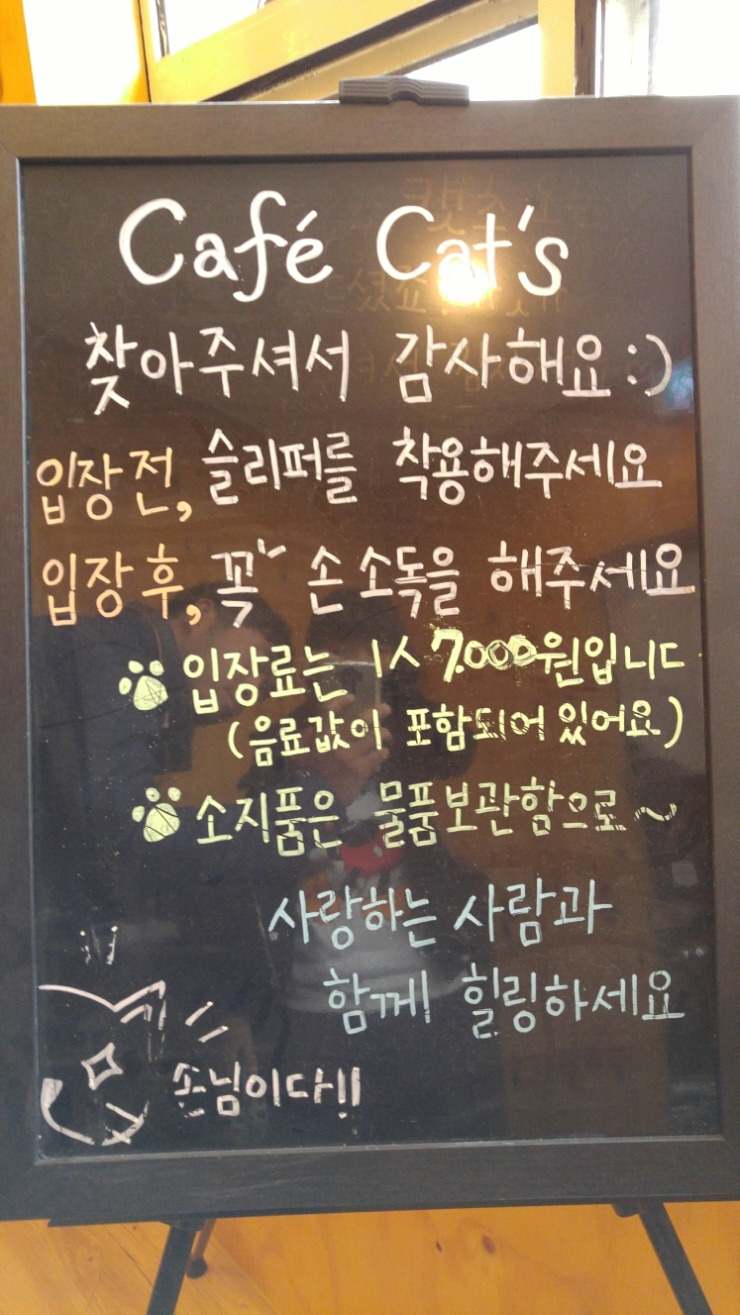 Café Cat's
찾아주셔서 감사해요 :)
입장 전, 슬리퍼를 착용해주세요
입장 후, 꼭 손 소독을 해주세요
입장료는 1人 7,000원입니다
(음료값이 포함되어 있어요)
소지품은 물품보관함으로~
사랑하는 사람과
함께 힐링하세요
손님이다!!